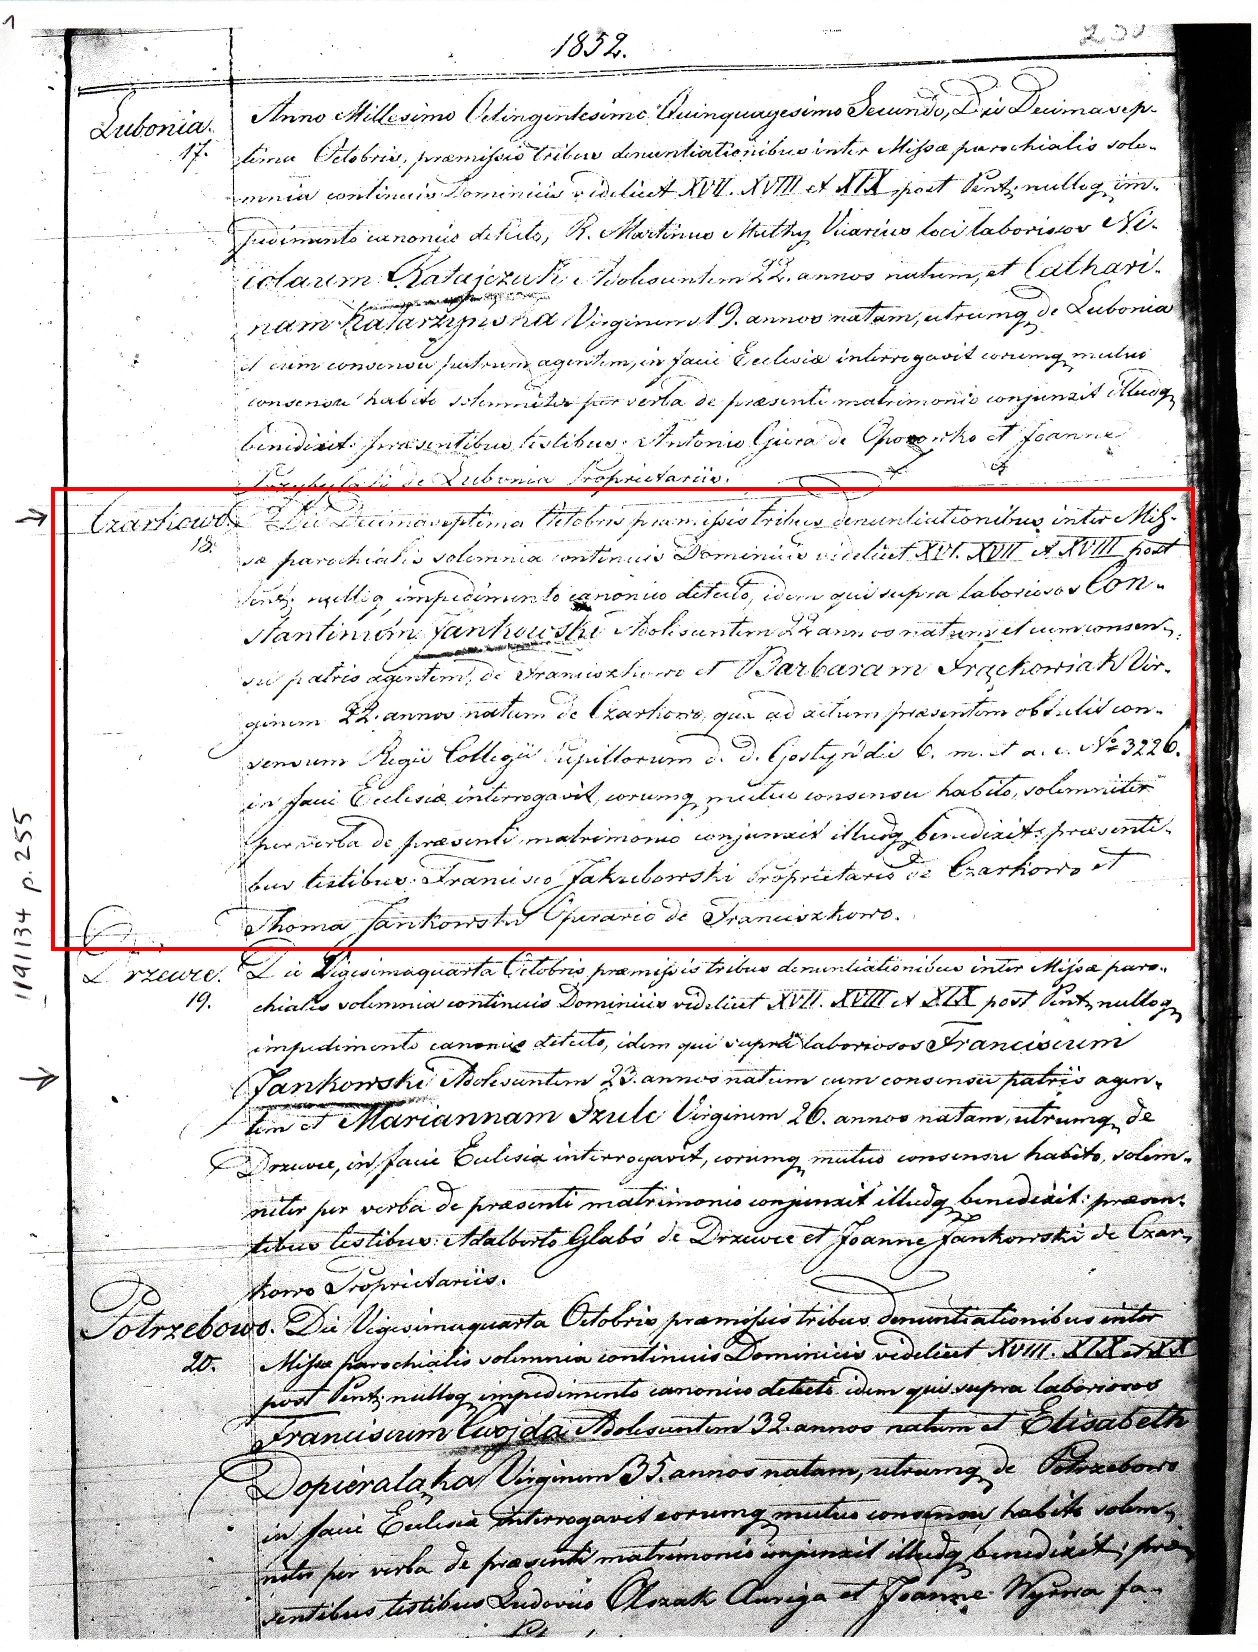 1852.
230
Lubonia.
17.
Anno Millesimo Octingentesimo Quinquagesimo Secundo, Die Decimasep-
tima Octobris, præmissis tribus denuntiationibus inter Missæ parochialis sole-
mnia continuis Dominicis videlicet XVII. XVIII et XIX post Pent. nulloq im-
pedimento canonico detecto, R. Martinus Muthy Vicarius loci laboriosos Ni-
colaum Ratajczak Adolescentem 22. annos natum, et Cathari-
nam Katarzyńska Virginem 19. annos natam, utrumq de Lubonia
et cum consensu patrum agentem, in facie Ecclesiæ interrogavit eorumq mutuo
consensu habito solemniter per verba de præsenti matrimonio conjunxit illudq
benedixit: præsentibus testibus: Antonio Giera de et Joanne
Przybylski de Lubonia Proprietariis.
Czarkowo
18.
Die Decimaseptima Octobris præmissis tribus denuntiationibus inter Mis-
sæ parochialis solemnia continuis Dominicis videlicet XVI. XVII et XVIII post
Pent. nulloq impedimento canonico detecto, idem qui supra laboriosos Con-
stantinum Jankowski Adolescentem 22 annos natum et cum consen-
su patris agentem, de Franciszkowo et Barbaram Frąckowiak Vir-
ginem 22. annos natam de Czarkowo, quæ ad actum præsentem obtulit con-
sensum Regii Collegii Pupillorum d. d. Gostyń die 6. m. et a. c. No 3226.
in facie Ecclesiæ interrogavit, eorumq mutuo consensu habito, solemniter
per verba de præsenti matrimonio conjunxit illudq benedixit: præsenti-
bus testibus: Francisco Jakubowski Proprietario de Czarkowo et
Thoma Jankowski Operario de Franciszkowo.
1191134 p. 255
Drzewce.
19.
Die Vigesimaquarta Octobris præmissis tribus denuntiationibus inter Missæ paro-
chialis solemnia continuis Dominicis videlicet XVII. XVIII et XIX post Pent. nulloq
impedimento canonico detecto, idem qui supra laboriosos Franciscum
Jankowski Adolescentem 23. annos natum cum consensu patris agen-
tem et Mariannam Szulc Virginem 26. annos natam, utrumq de
Drzewce, in facie Ecclesiæ interrogavit, eorumq mutuo consensu habito, solem-
niter per verba de præsenti matrimonio conjunxit illudq benedixit: præsen-
tibus testibus: Adalberto Glabś de Drzewce et Joanne Jankowski de Czar-
kowo Proprietariis.
Potrzebowo.
20.
Die Vigesimaquarta Octobris præmissis tribus denuntiationibus inter
Missæ parochialis solemnia continuis Dominicis videlicet XVIII. XIX et XX
post Pent. nulloq impedimento canonico detecto idem qui supra laboriosos
Franciscum Cwojda Adolescentem 32. annos natum et Elisabeth
Dopierałaka Virginem 35. annos natam, utrumq de Potrzebowo
in facie Ecclesiæ interrogavit eorumq mutuo consensu habito solem-
niter per verba de præsenti matrimonio conjunxit illudq benedixit; præ-
sentibus testibus Ludovico Olszak Auriga et Joanne Wyrwa fa-